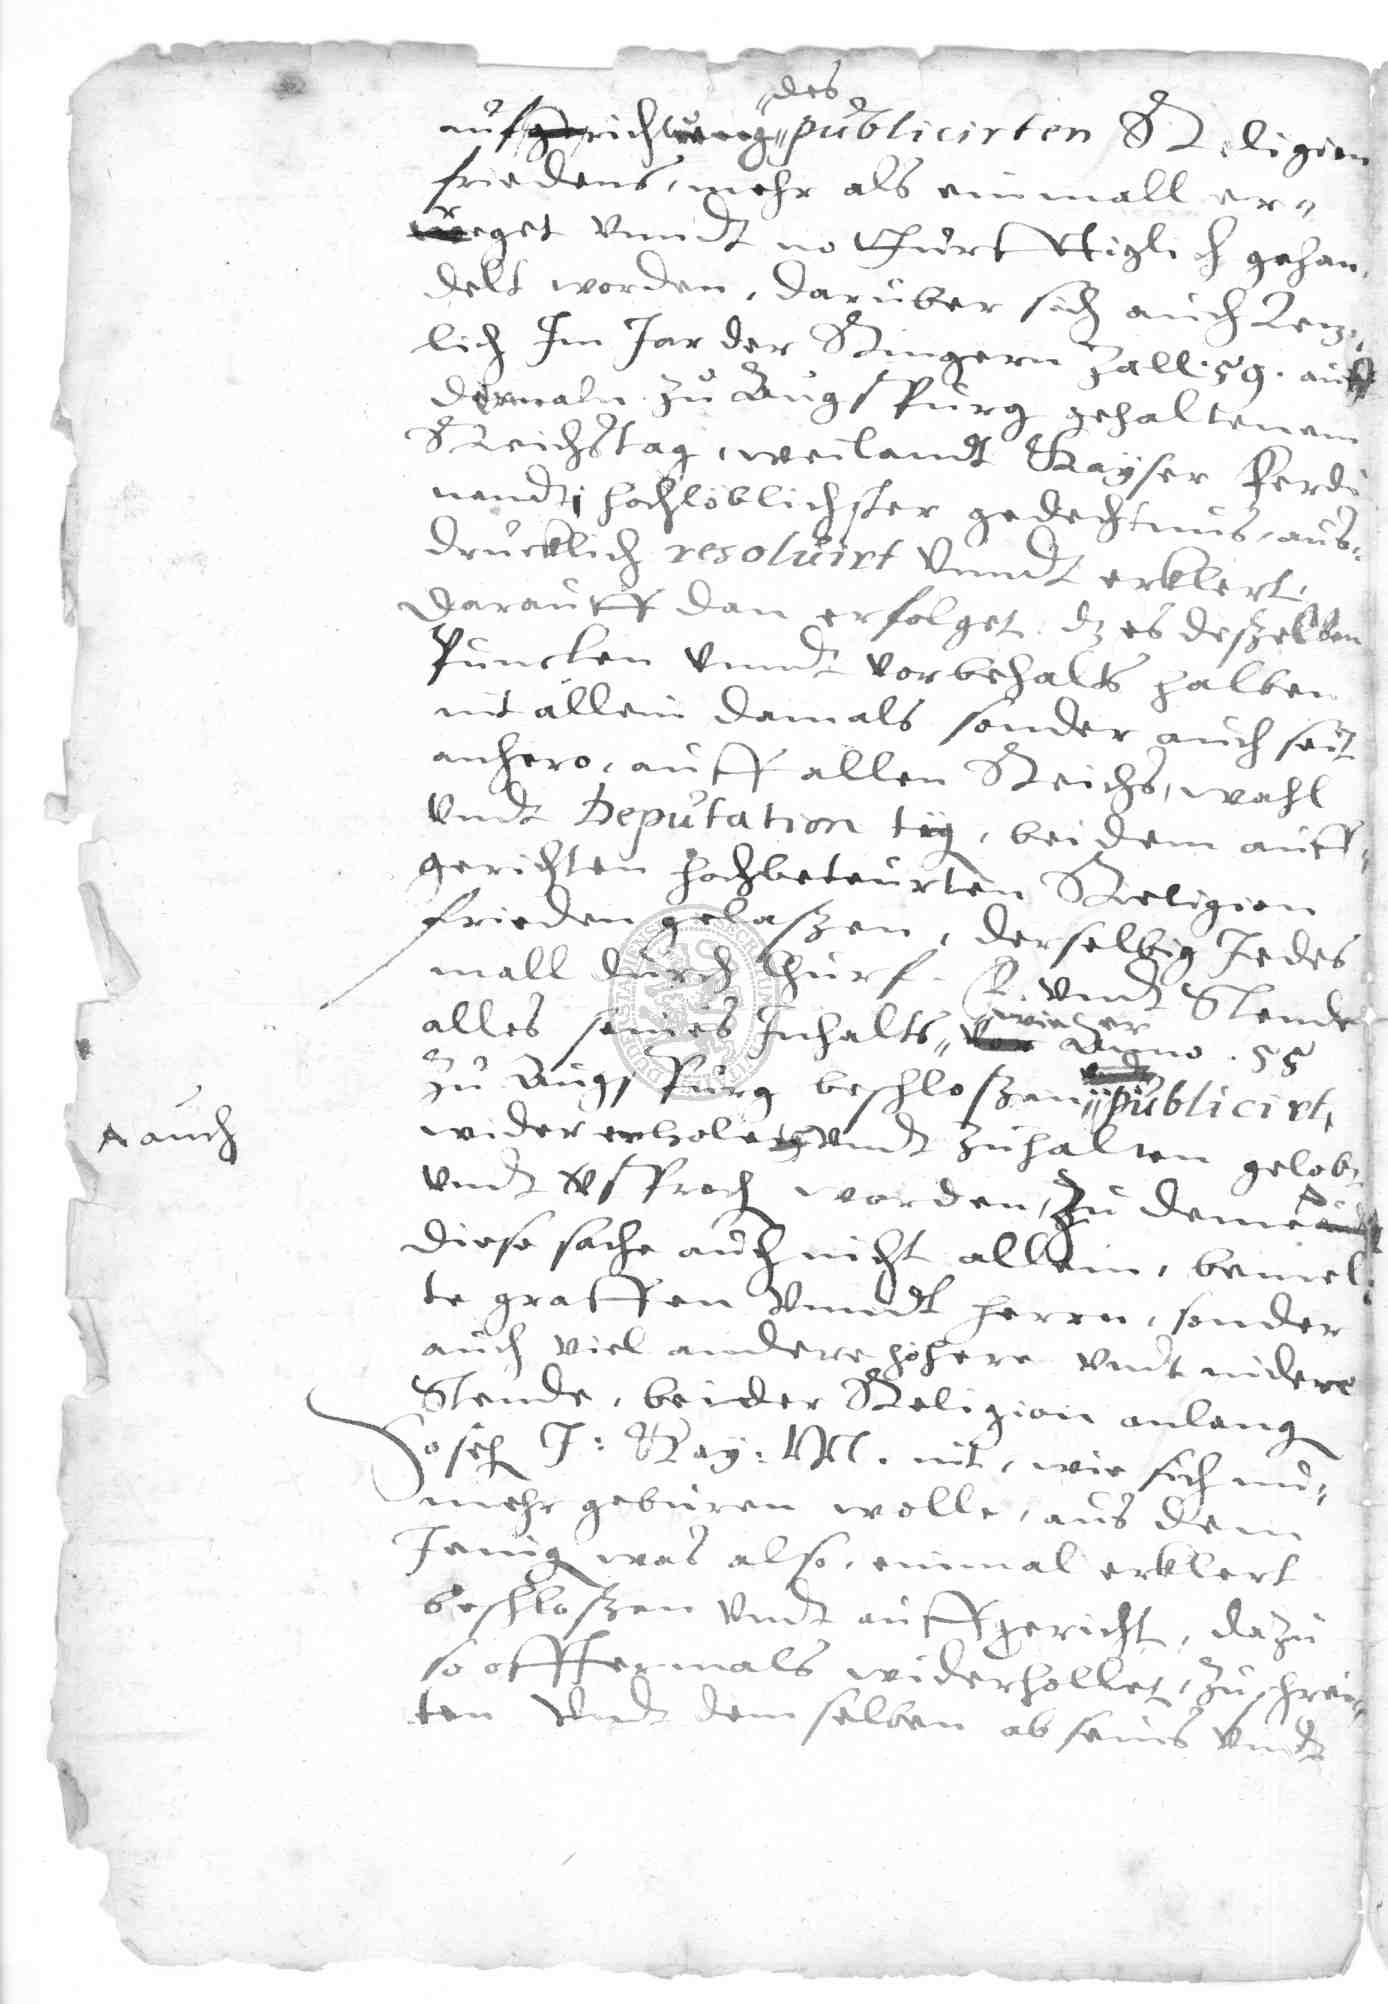 des
aufrichtung publicirten Religion
friedens, mehr als einmall er-
reget vnndt notthurfftiglich gehan,
delt worden, daruber sich auch Letz,
lich Im Jar der Ringern Zall .59. auff
dermaln zu Augspurg gehaltenem
Reichstag, weilandt Kayser Ferdi
nandt hochlöblichster gedechtnus, aus-
drucklich resoluirt vnndt erklert,
darauff dan erfolget dz es deßelben
Puncten vnndt vorbehalts halben
nit allein damals sonder auch seit
anhero, auff allen Reichs, wahl
vndt Deputation täg, bei dem auff-
gerichten hochbeteurten Religion
frieden gelaßen, derselbig Jedes
mall durch Churf. F. vndt Stende
alles seines Inhalts, wie er Anno .55
zu Augspurg beschloßen publicirt,
A auch
widererholet vndt zuhalten gelobt
vndt vsproch worden, Zu deme
diese sache auch nicht allein, bemel
te graffen vnndt herrn, sonder
auch viel andere höhere vndt nidere
Stende, beider Religion anlang
So seh J: Kay: Mt. nit, wie sich nu-
mehr geburen wolle, aus dem
Jenig was also, einmal erklert
beschloßen vndt auffgericht, dazu
so offtermals widerhollet, zuschrei-
ten vndt dem selben abseins vndt